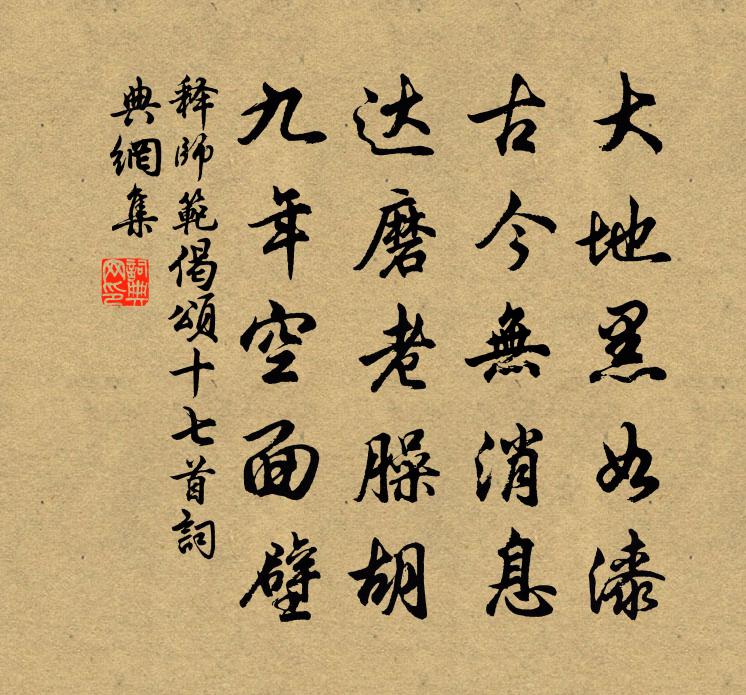 大地黑如漆
古今無消息
达磨老臊胡
九年空面壁
释師範偈頌十七首詞
典網集
詞典网印